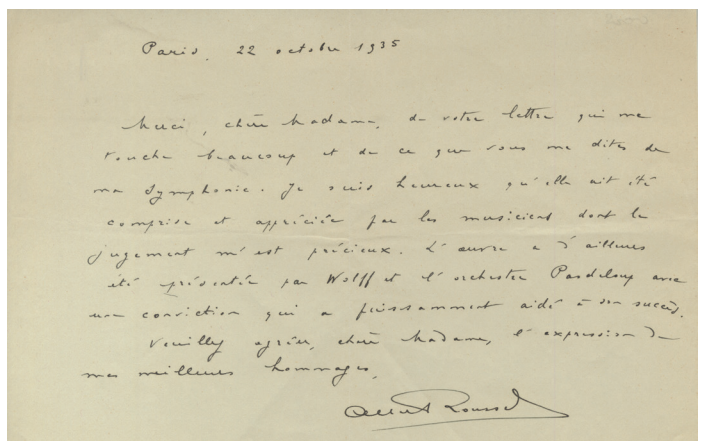 Paris, 22 octobre 1935
Merci, chère Madame, de votre lettre qui me
touche beaucoup et de ce que vous me dites de
ma Symphonie. Je suis heureux qu'elle ait été
comprise et appréciée par les musiciens dont le
jugement m'est précieux. L'œuvre a d'ailleurs
été présentée par Wolff et l'orchestre Pasdeloup avec
une conviction qui a puissamment aidé à son succès.
Veuillez agréer, chère Madame, l'expression de
mes meilleurs hommages.
Albert Roussel